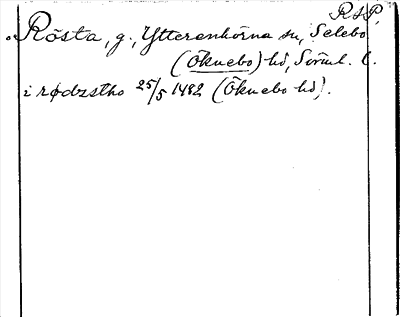 RAP.
Rösta, g., Ytterenhörna sn, Selebo
(Öknebo) hd, Sörml. l.
i rødzstho 25/5 1482 (Öknebo hd).